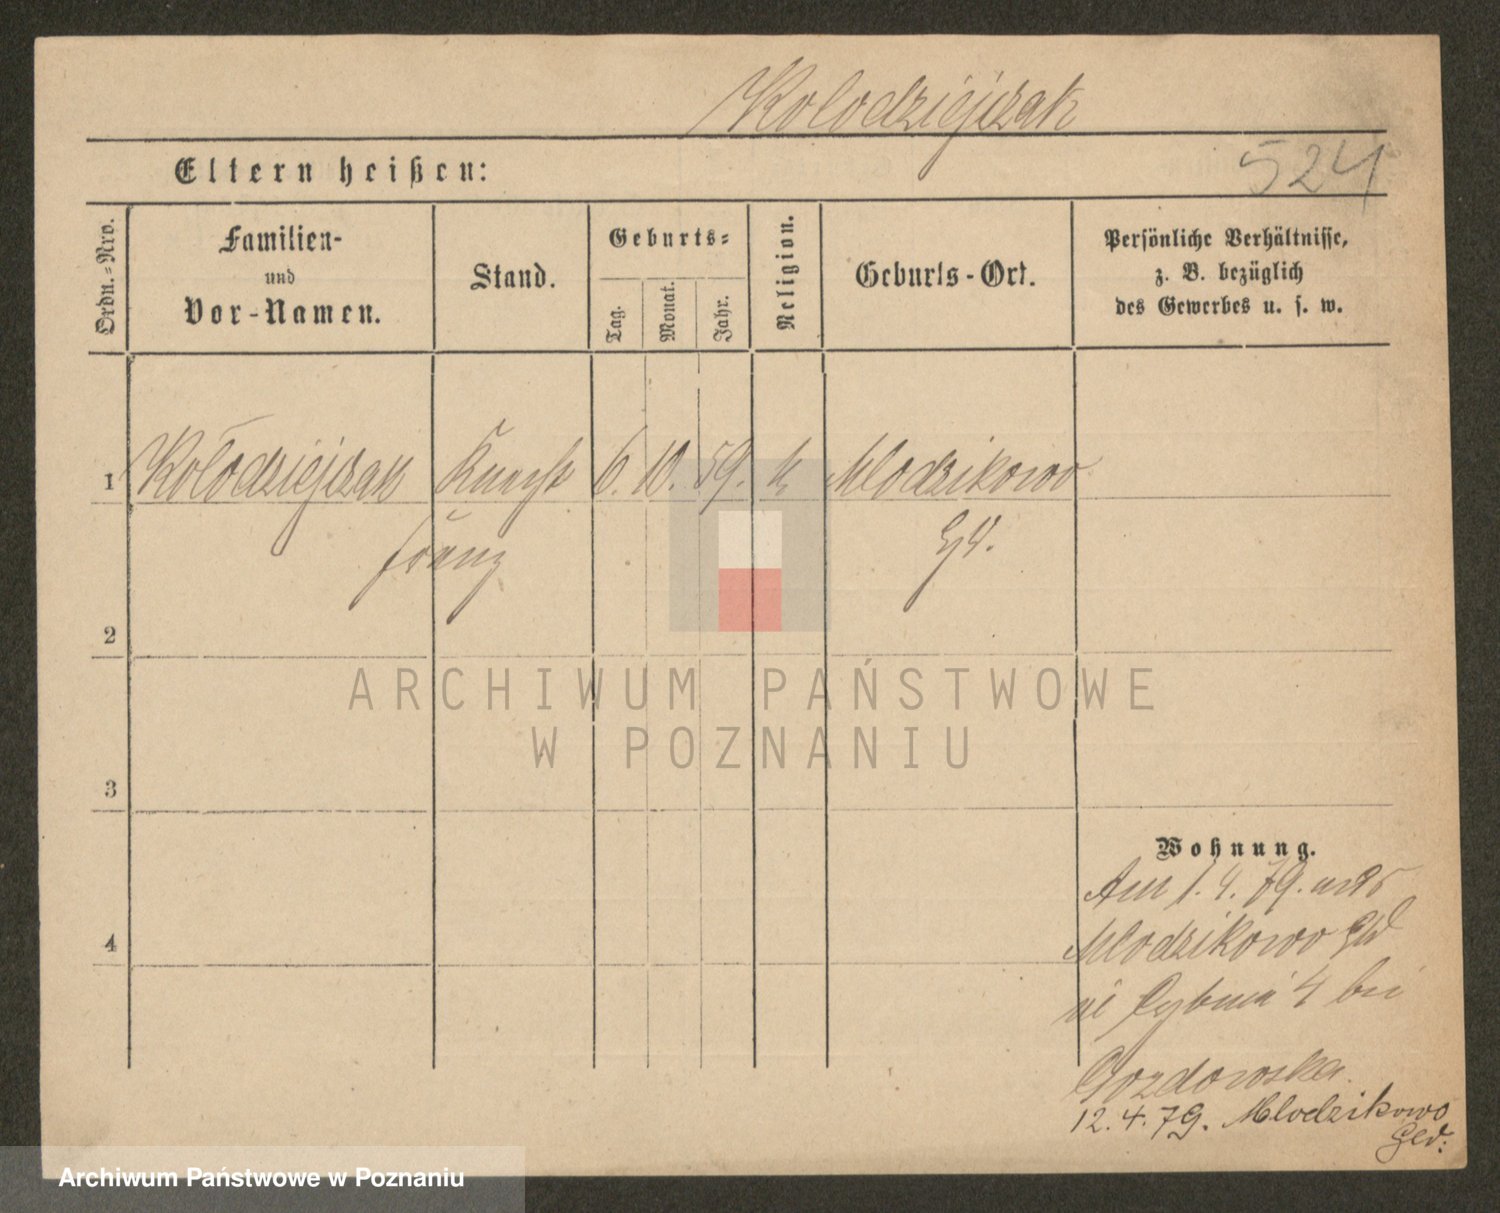 Kolodziejczak
Eltern heißen:
524
Ordn.-Nro.
Familien-
und
Vor-Namen.
Stand.
Geburts-
Tag.
Monat.
Jahr.
Religion.
Geburts-Ort.
Persönliche Verhältnisse,
z. B. bezüglich
des Gewerbes u. s. w.
1 Kołodziejczak Knecht 6. 10. 59. k Mlodzikowo
Franz
2
3
4
Wohnung.
Am 1. 4. 79. aus
Mlodzikowo
4 bei
Gozdowska
12. 4. 79. Mlodzikowo
ARCHIWUM PAŃSTWOWE
W POZNANIU
Archiwum Państwowe w Poznaniu